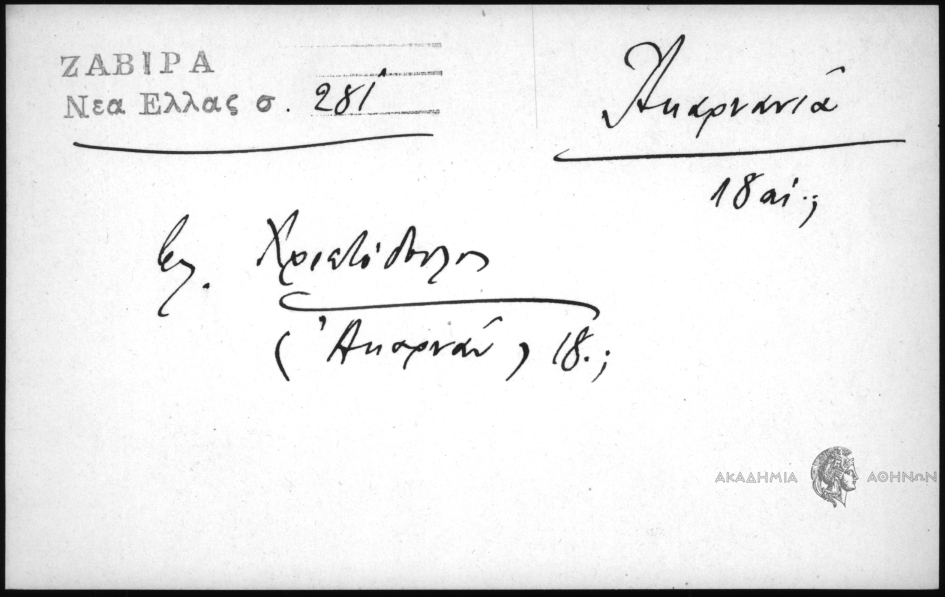 ΖΑΒΙΡΑ
Νεα Ελλας σ. 281
Ἀκαρνανία
18 αἰ.;
Χριστόδουλος
(Ἀκαρνάν) 18.;
ΑΚΑΔΗΜΙΑ ΑΘΗΝΩΝ